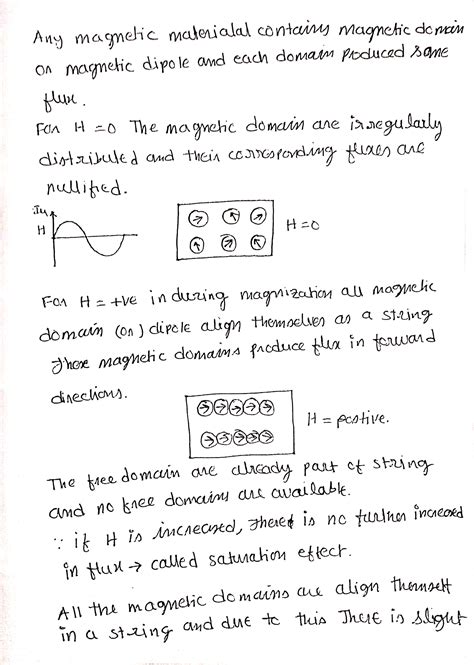 Any magnetic materialal contains magnetic domain
on magnetic dipole and each domain produced some
flux.
For H =0 The magnetic domain are irregularly
distributed and their corresponding fluxes are
nullified.
H
H=0
For H = +ve in during magnization all magnetic
domain (or) dipole align themselves as a string
These magnetic domains produce flux in forward
directions.
H = postive.
The free domain are already part of string
and no free domains are available.
∵ if H is increased, there is no further increased
in flux → called saturation effect.
All the magnetic domains are align themself
in a string and due to this There is slight